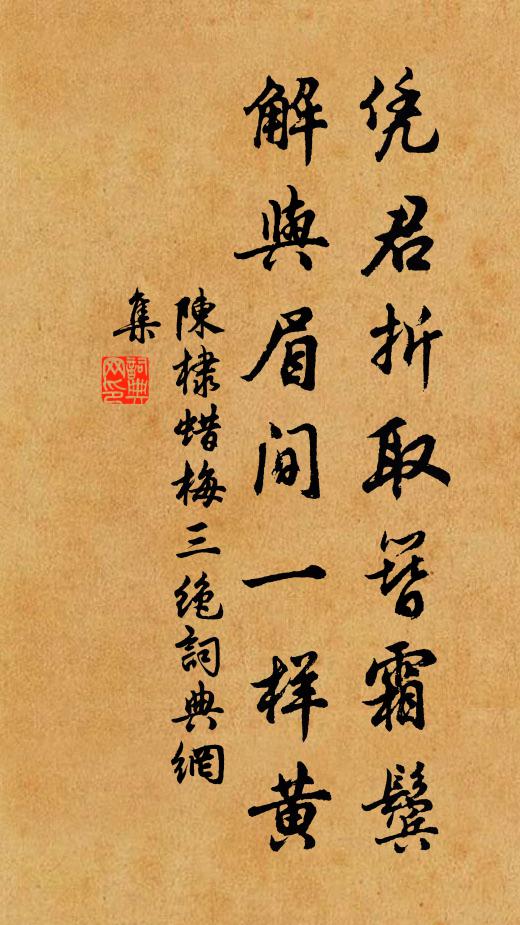 凭君折取簪霜鬓
解與眉间一样黄
陳棣蜡梅三绝詞典網
集
詞典
网印